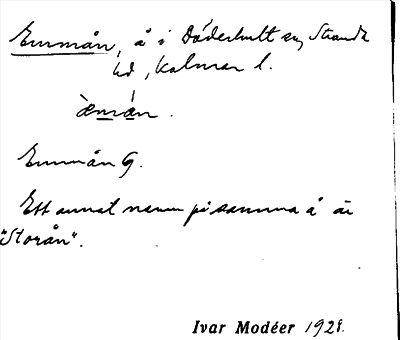 Emmån, å i Döderhult sn, Stranda
hd, Kalmar l.
æ̀mán.
Emmån G.
Ett annat namn på samma å är
"Storån".
Ivar Modéer 1928.